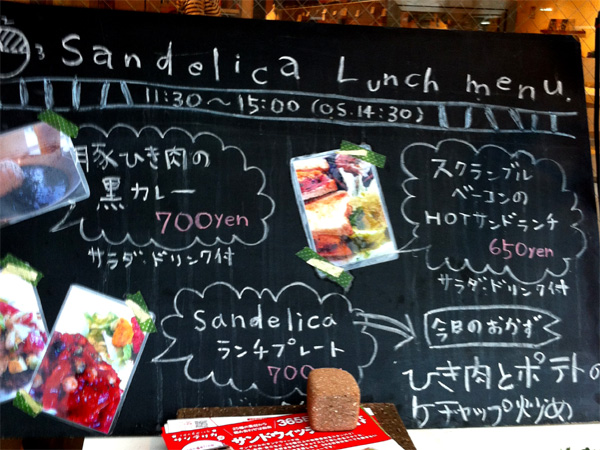 Sandelica Lunch menu.
11:30～15:00 (OS.14:30)
豚ひき肉の
黒カレー
700yen
サラダ・ドリンク付
スクランブル
ベーコンの
HOTサンドランチ
650yen
サラダ・ドリンク付
Sandelica
ランチプレート
700
今日のおかず
ひき肉とポテトの
ケチャップ炒め
365
サンドウィッ